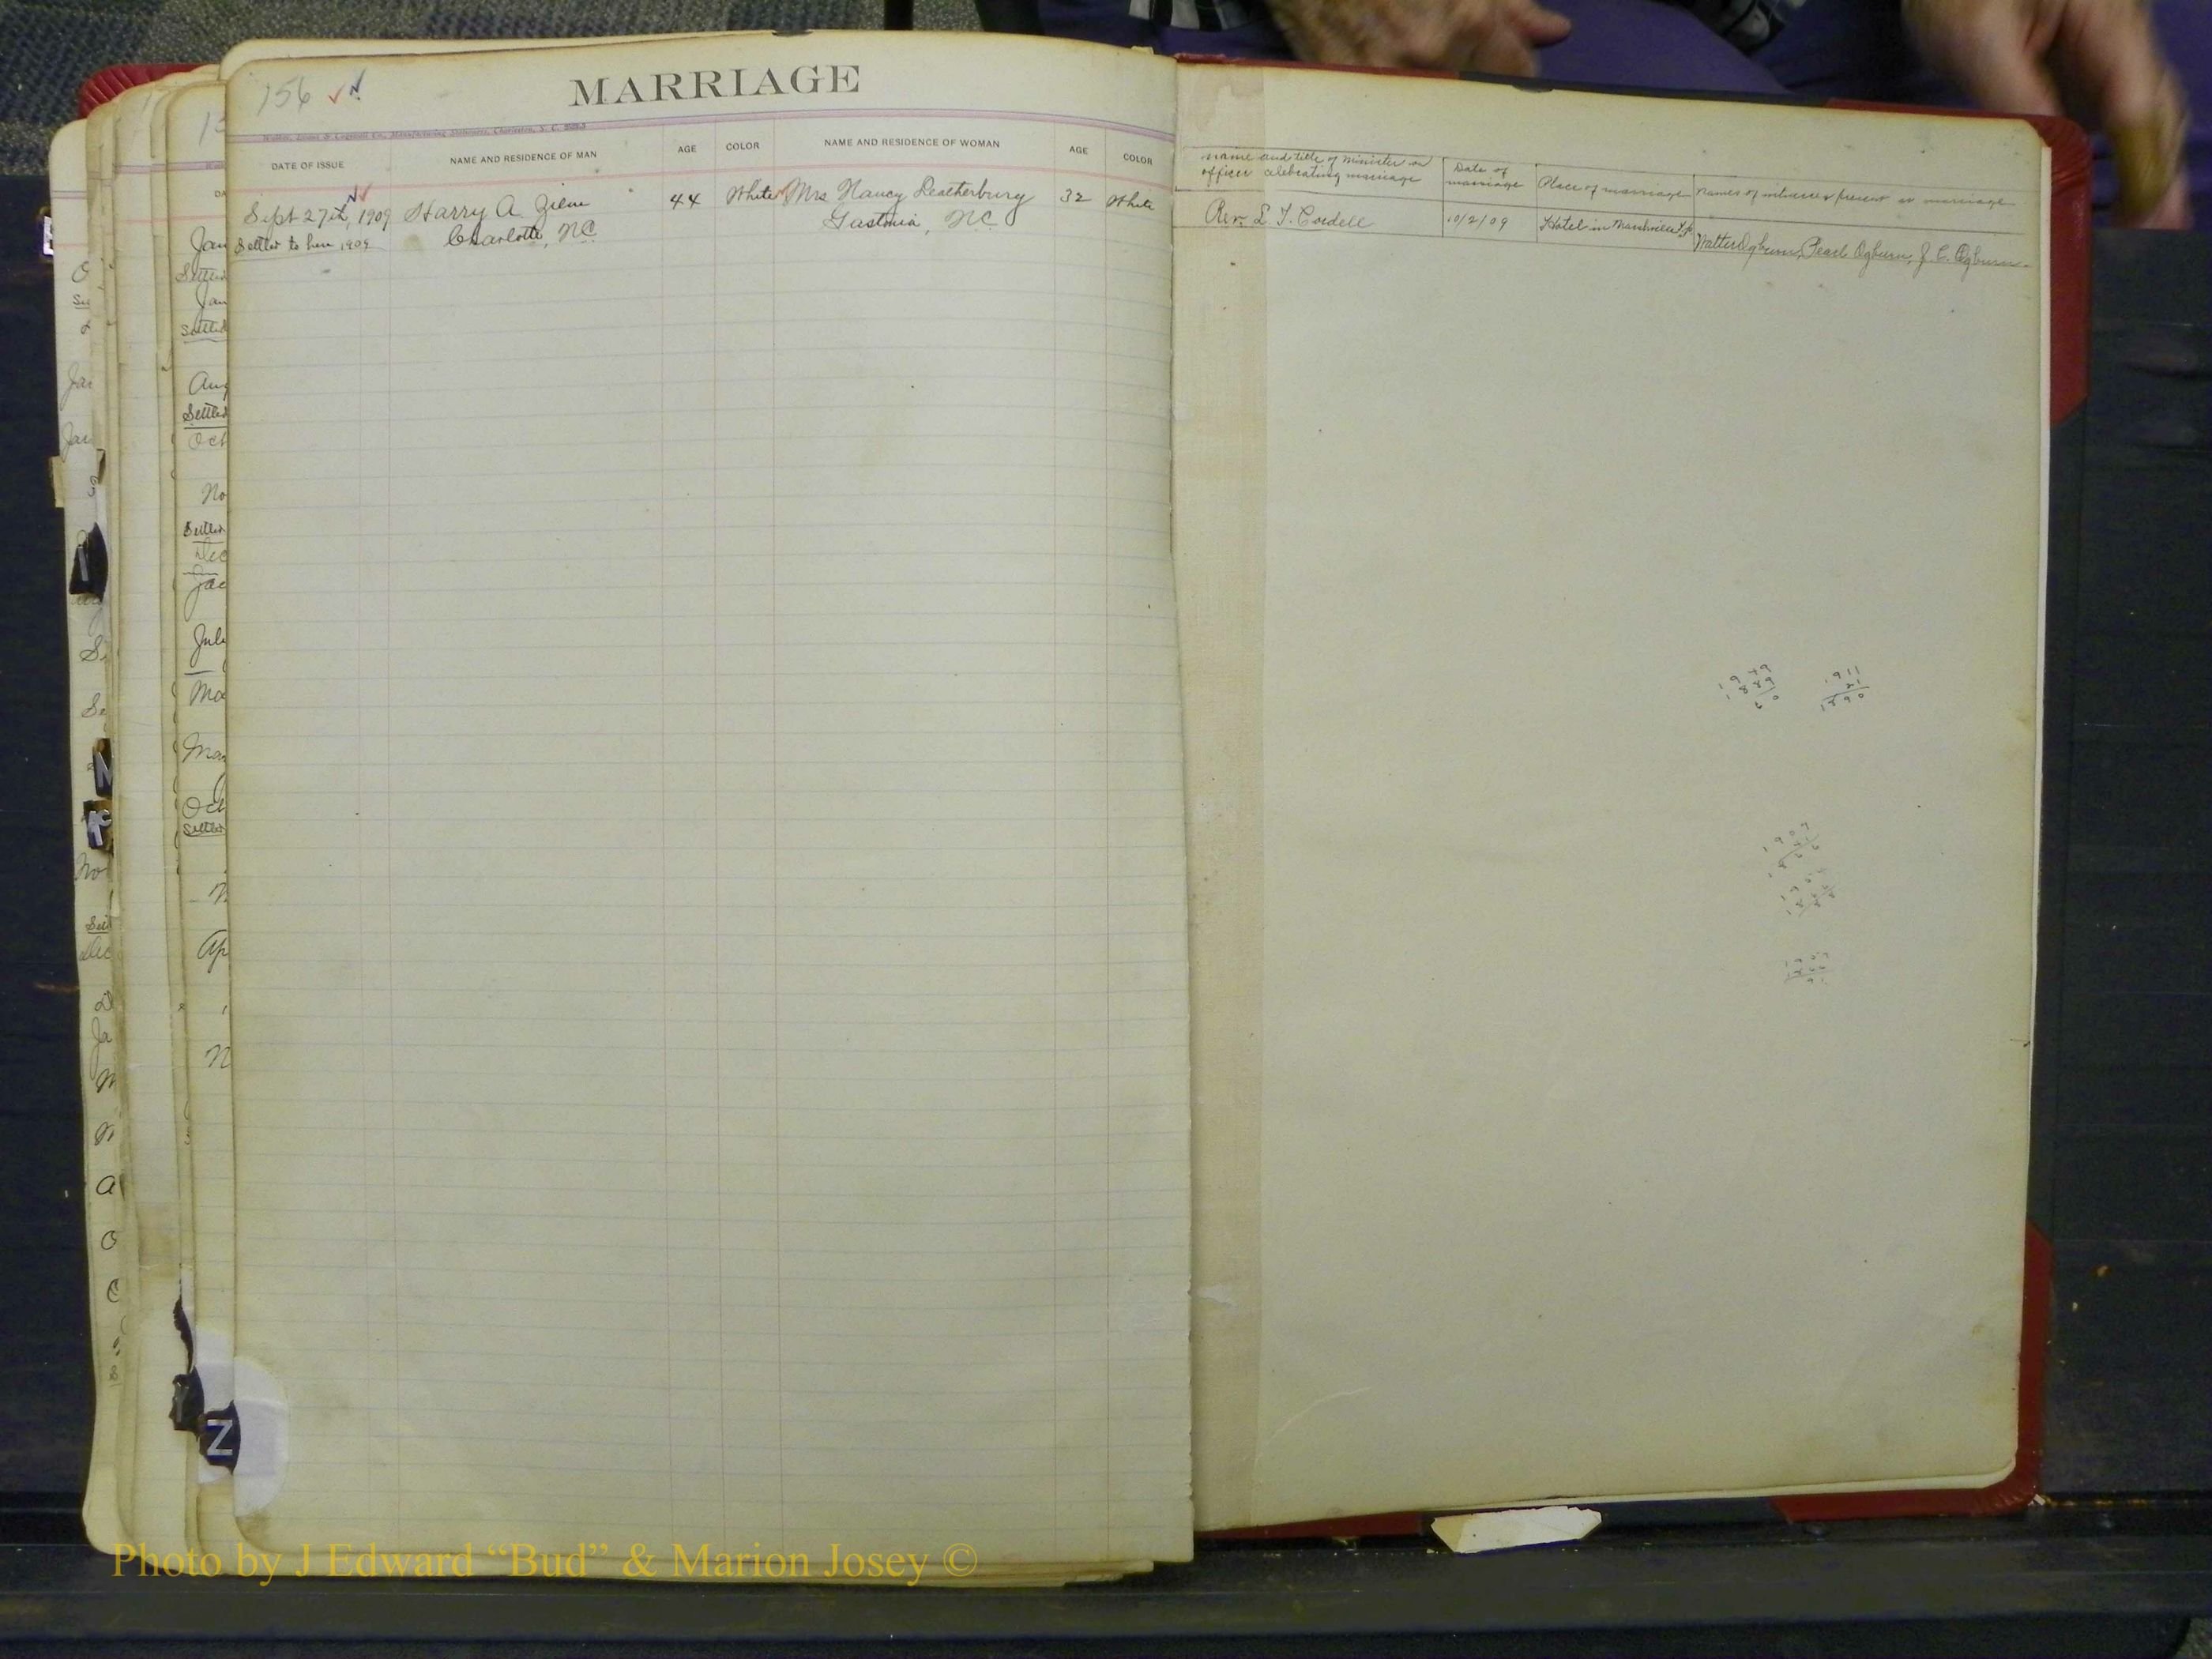 156
MARRIAGE
DATE OF ISSUE
NAME AND RESIDENCE OF MAN
AGE
COLOR
NAME AND RESIDENCE OF WOMAN
AGE
COLOR
Sept 27th, 1909 Harry A. Ziem 44 White Mrs Nancy Leatherbury 32 White
Settled to here 1909 Charlotte, NC Gastonia, NC
name and title of minister or
officer celebrating marriage
Date of
marriage
Place of marriage
Names of witnesses present at marriage
Rev. L. T. Cordell 10/2/09 Hotel in Marshville
Walter Ogburn, Pearl Ogburn, J. C. Ogburn
1949
1889
60
1911
21
1890
Jan
Settled
Jan
Settled
Aug
Settled
Oct
No
Settled
Dec
July
Ma
Mar
Oct
Settled
Ap
Z
Photo by J Edward “Bud” & Marion Josey ©